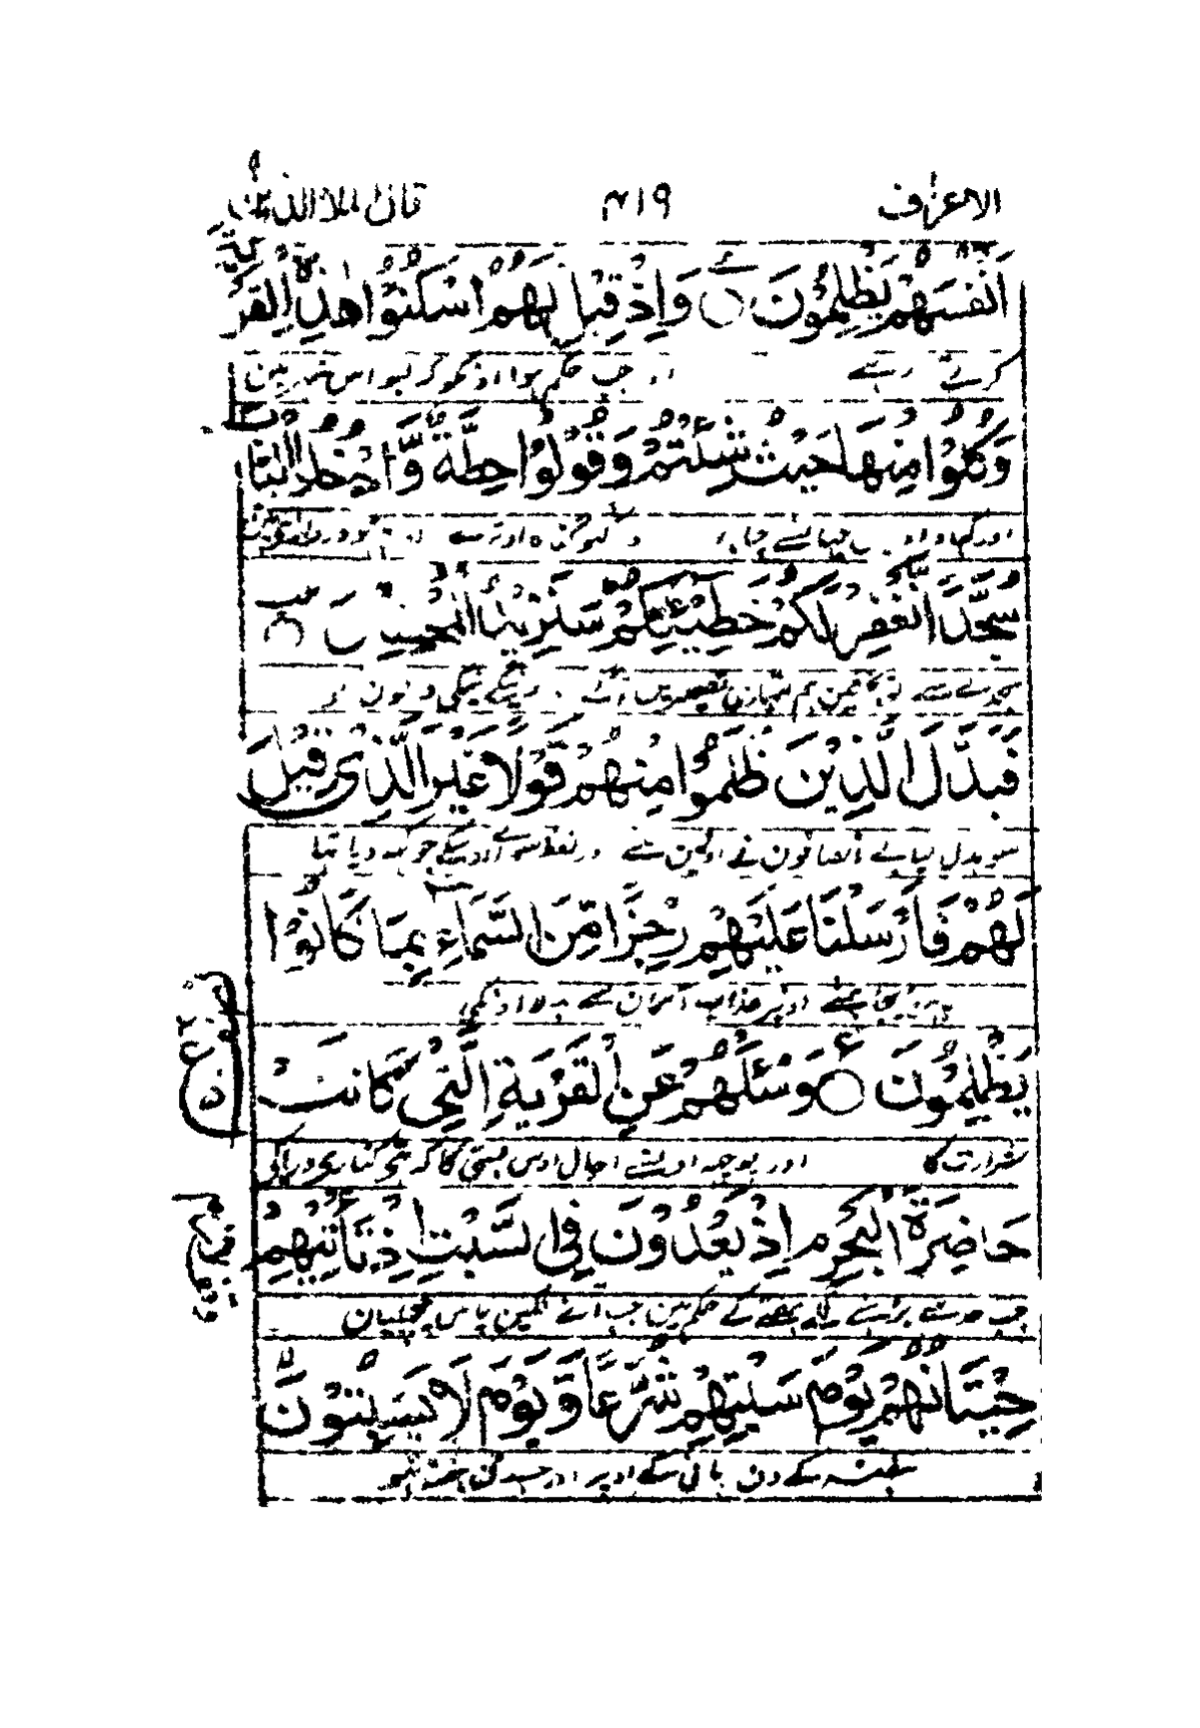 الاعراف ۴۱۹ قال الملا الذين ۹
اَنْفُسَهُمْ يَظْلِمُوْنَ ○ وَاِذْ قِيْلَ لَهُمُ اسْكُنُوْا هٰذِهِ الْقَرْيَةَ
کرتے رہے اور جب حکم ہوا اونکو کہ بسو اس شہر مین
وَكُلُوْا مِنْهَا حَيْثُ شِئْتُمْ وَقُوْلُوْا حِطَّةٌ وَّادْخُلُوا الْبَابَ
اور کھاو جہانسے چاہو اور کہو گناہ اوترے
سُجَّدًا نَّغْفِرْ لَكُمْ خَطِيْٓئٰتِكُمْ سَنَزِيْدُ الْمُحْسِنِيْنَ ○
سجدے سے تو بخشین ہم تمہاری تقصیرین آگے نیکی والون کو
فَبَدَّلَ الَّذِيْنَ ظَلَمُوْا مِنْهُمْ قَوْلًا غَيْرَ الَّذِيْ قِيْلَ
سو بدل لیا بے انصافون نے اونمین سے اور لفظ سوائے اوسکے جو کہہ دیا تھا
لَهُمْ فَاَرْسَلْنَا عَلَيْهِمْ رِجْزًا مِّنَ السَّمَآءِ بِمَا كَانُوْا
پھر بھیجا ہمنے اونپر عذاب آسمان سے بدلا اونکی
يَظْلِمُوْنَ ○ وَسْئَلْهُمْ عَنِ الْقَرْيَةِ الَّتِيْ كَانَتْ
شرارت کا اور پوچھ اونسے احوال اوس بستی کا کہ تھی کنارے دریا کے
حَاضِرَةَ الْبَحْرِ م اِذْ يَعْدُوْنَ فِي السَّبْتِ اِذْ تَأْتِيْهِمْ
جب حد سے بڑہنے لگے ہفتے کے حکم مین جب آنے لگین پاس مچھلیان
حِيْتَانُهُمْ يَوْمَ سَبْتِهِمْ شُرَّعًا وَّيَوْمَ لَا يَسْبِتُوْنَ
ہفتہ کے دن پانی کے اوپر اور جسدن ہفتہ نہو